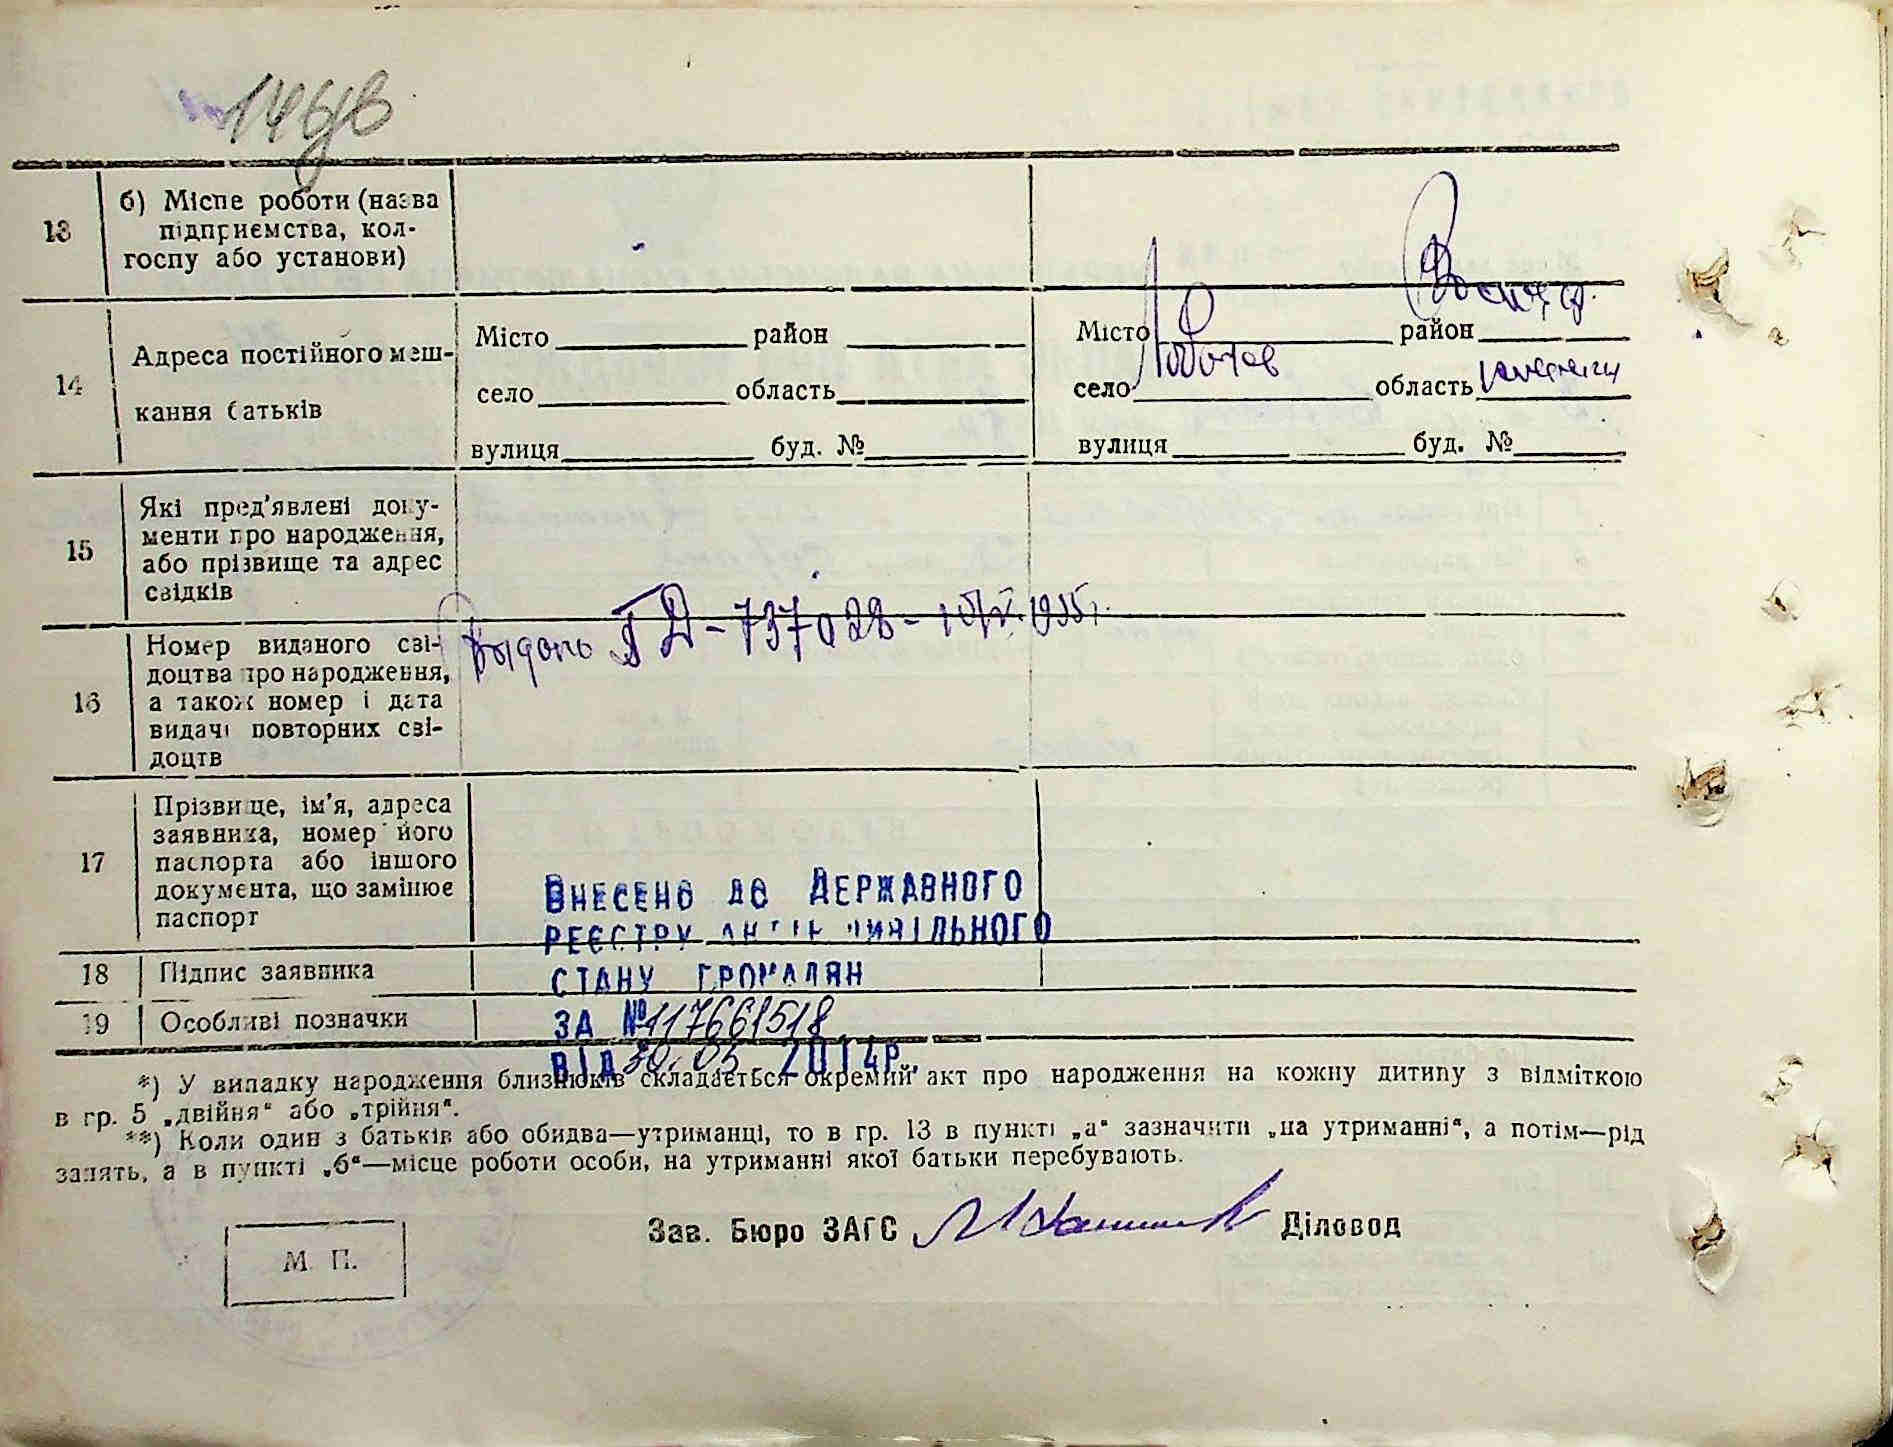 13
б) Місце роботи (назва
підприємства, кол-
госпу або установи)
14
Адреса постійного меш-
кання батьків
Місто район
село область
вулиця буд. №
Місто район
село область
вулиця буд. №
15
Які пред'явлені доку-
менти про народження,
або прізвище та адрес
свідків
16
Номер виданого сві-
доцтва про народження,
а також номер і дата
видачі повторних сві-
доцтв
17
Прізвище, ім'я, адреса
заявника, номер його
паспорта або іншого
документа, що замінює
паспорт
ВНЕСЕНО ДО ДЕРЖАВНОГО
РЕЄСТРУ АКТІВ ЦИВІЛЬНОГО
18
Підпис заявника
СТАНУ ГРОМАДЯН
19
Особливі позначки
ЗА №117661518
ВІД 30.05. 2014р.
*) У випадку народження близнюків складається окремий акт про народження на кожну дитину з відміткою
в гр. 5 „двійня“ або „трійня“.
**) Коли один з батьків або обидва—утриманці, то в гр. 13 в пункті „а“ зазначити „на утриманні“, а потім—рід
занять, а в пункті „б“—місце роботи особи, на утриманні якої батьки перебувають.
Зав. Бюро ЗАГС Діловод
М. П.